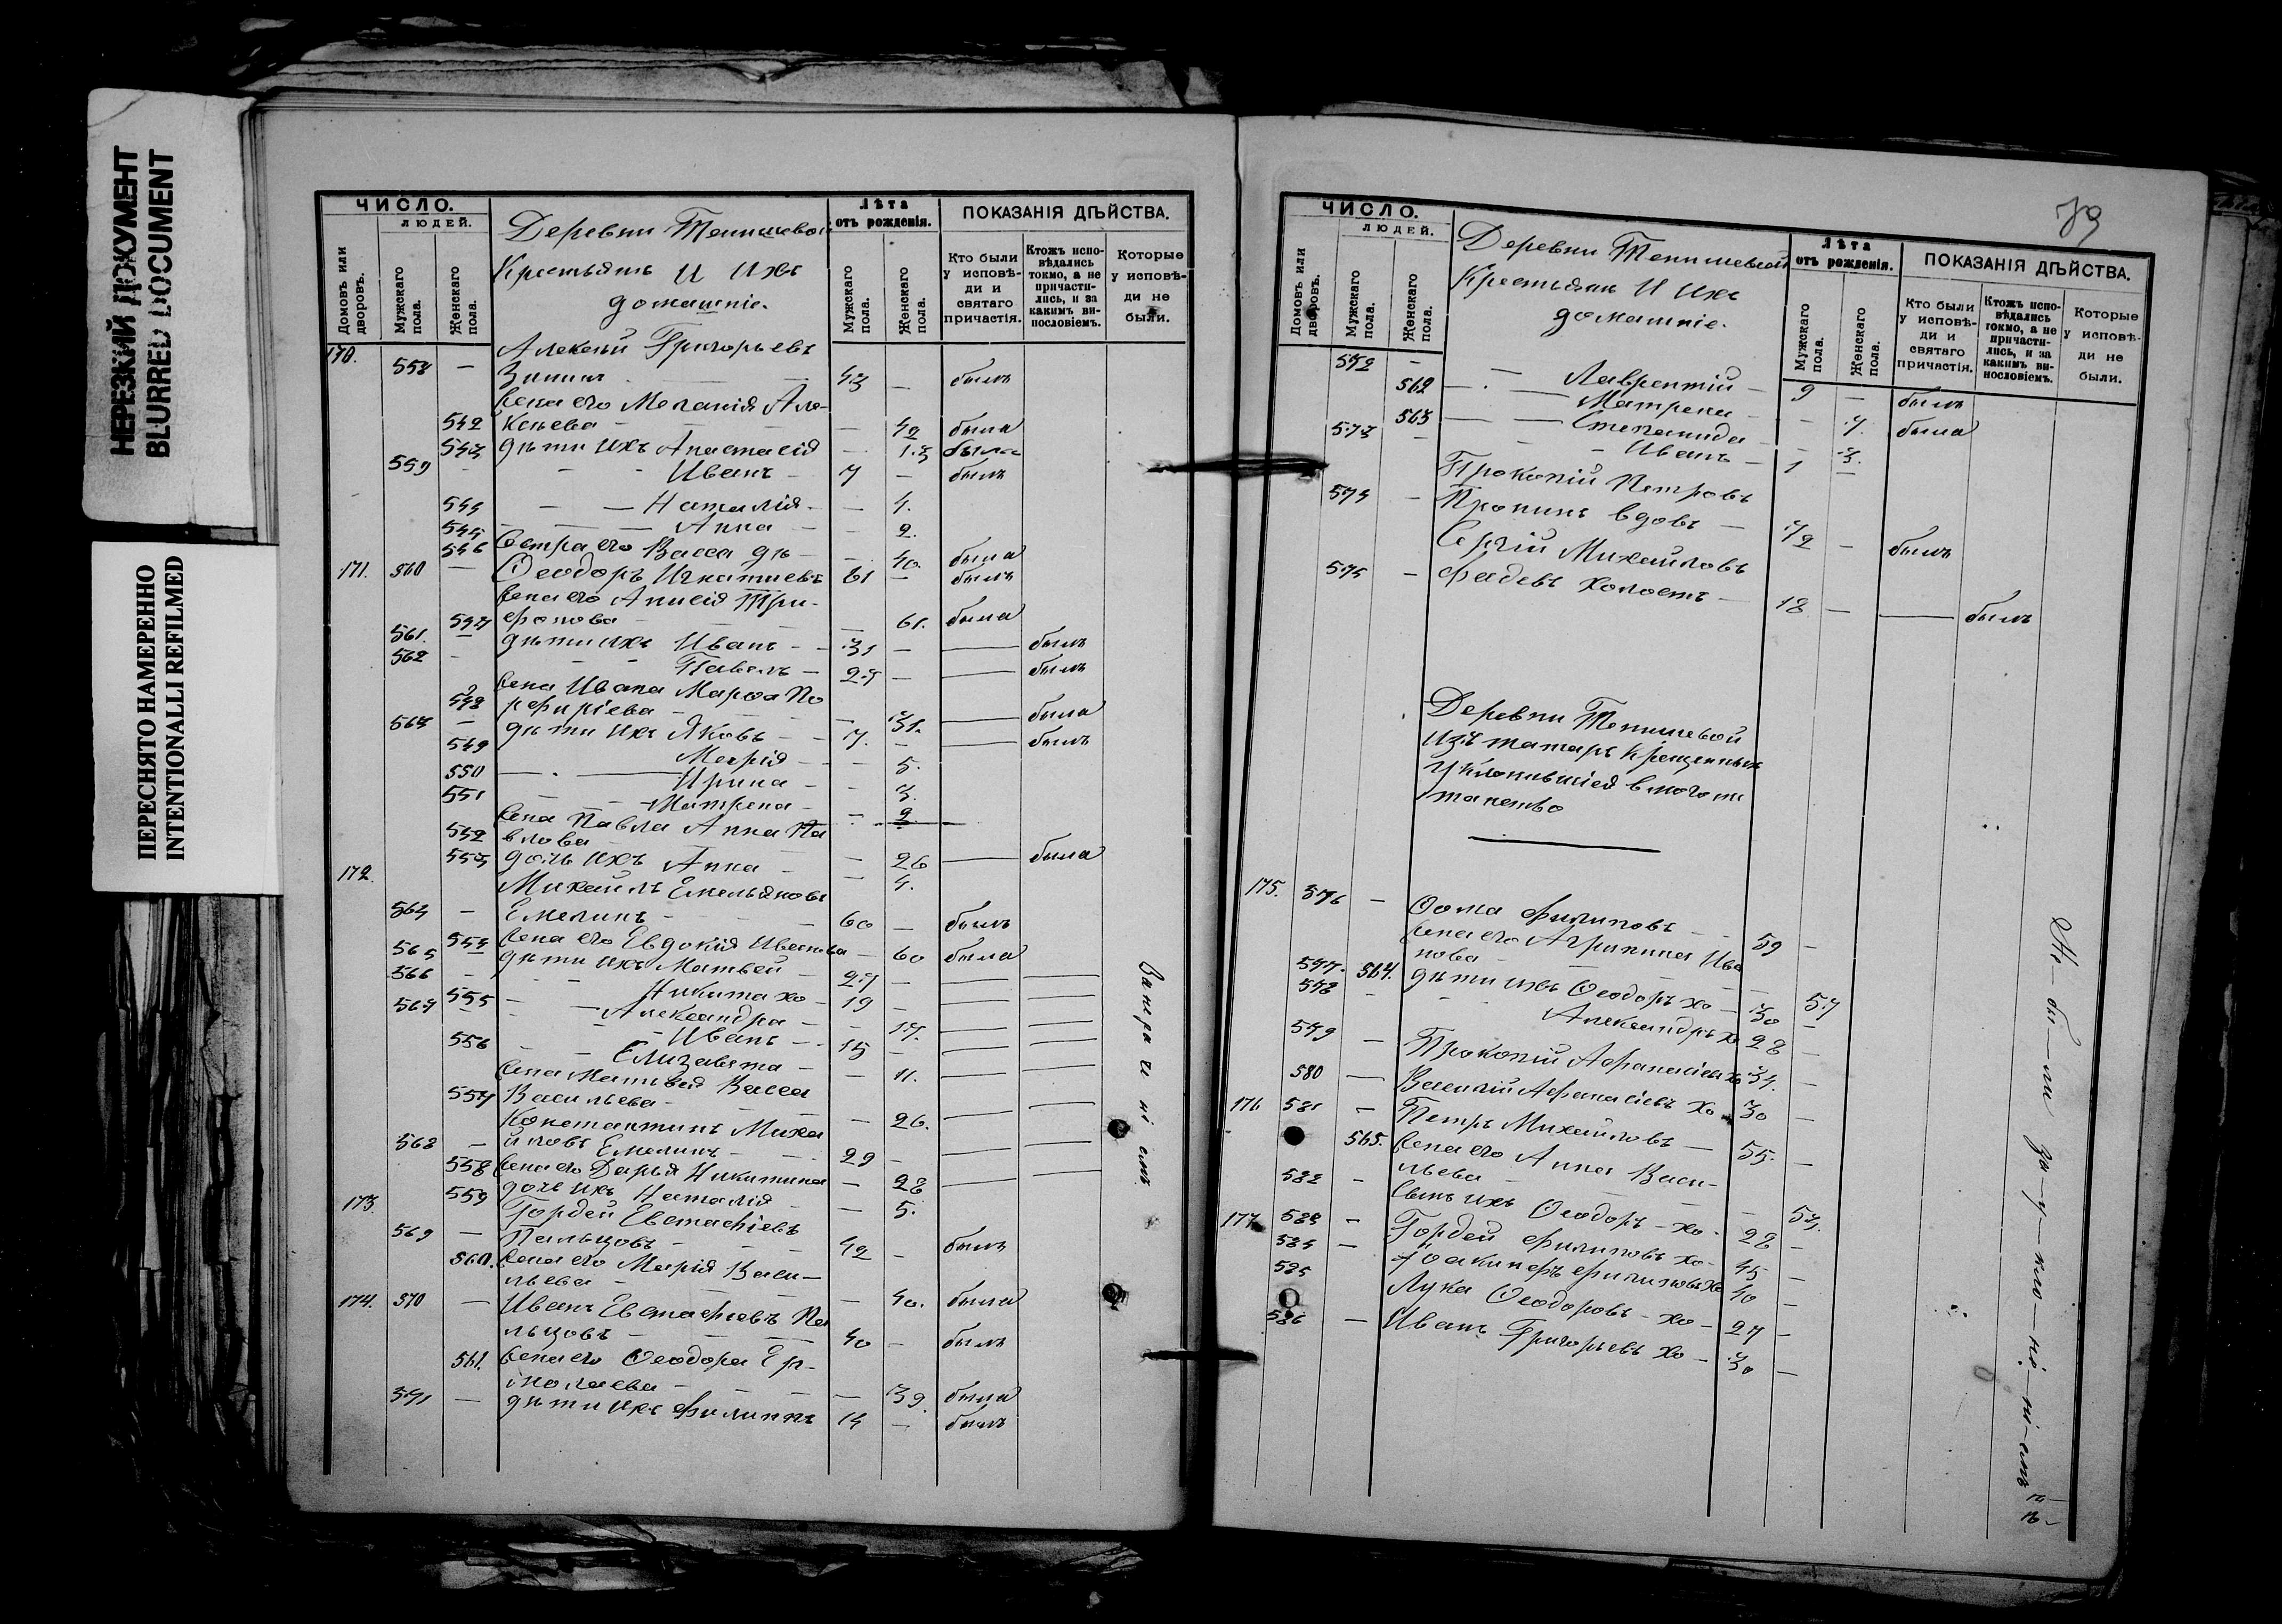 НЕРЕЗКИЙ ДОКУМЕНТ
BLURRED DOCUMENT
ПЕРЕСНЯТО НАМЕРЕННО
INTENTIONALLI REFILMED
ЧИСЛО.
ЛЮДЕЙ.
Домовъ или дворовъ.
Мужскаго пола.
Женскаго пола.
Деревни Тенишевой
Крестьянъ и ихъ
домашніе.
Лѣта
отъ рожденія.
Мужскаго пола.
Женскаго пола.
ПОКАЗАНІЯ ДѢЙСТВА.
Кто были у исповѣди и святаго причастія.
Ктожъ исповѣдались токмо, а не причастились, и за какимъ винословіемъ.
Которые у исповѣди не были.
170. Алексѣй Григорьевъ
558 — Зининъ — 43 — былъ
Жена его Меланія Але-
542 ксѣева — — 42 была
543 дѣти ихъ Анастасія — 13 была
559 — Иванъ — 7 — былъ
544 — — Наталія — — 4.
545 — — Анна — — 2.
546 Сестра его Васса дѣ — — 40. была
171. 560 — Ѳеодоръ Игнатьевъ 61 — былъ
Жена его Анисія Три-
547 фонова — — 61. была
561. — дѣти ихъ Иванъ — 31 — — былъ
562 — — Павелъ — 27 — — былъ
Жена Ивана Марѳа По
548 рфиріева — — 31. — была
563 — дѣти ихъ Яковъ — 7. — — былъ
549 Марія — — 5.
550 — Ирина — — 3.
551 — Матрена — — 2
Жена Павла Анна Па
552 влова — — 26 — была
553 дочь ихъ Анна — — 4.
172. Михаилъ Емельяновъ
564 — Емелинъ — 60 — былъ
554 Жена его Евдокія Иванова — 60 была
565 дѣти ихъ Матвѣй — 27 —
566 — Никита хо — 19 —
555 — Александра — — 17.
567 — Иванъ — 15 —
556 — Елизавета — — 11.
Жена Матвѣя Васса
557 Васильева — — 26.
Константинъ Миха
568 — йловъ Емелинъ — 29 —
558 Жена его Дарья Никитина — 28
559 дочь ихъ Наталія — — 5.
173. Гордей Евстафіевъ
569 — Пальцовъ — 42 — былъ
560. Жена его Марія Васи-
льева — — 40. была
174. 570 — Иванъ Евстафіевъ Па
льцовъ — 40 — былъ
561. Жена его Ѳеодора Ер-
молаева — — 39. была
571 — дѣти ихъ Филиппъ 14 — былъ
79
ЧИСЛО.
ЛЮДЕЙ.
Домовъ или дворовъ.
Мужскаго пола.
Женскаго пола.
Деревни Тенишевой
Крестьянъ и ихъ
домашніе.
Лѣта
отъ рожденія.
Мужскаго пола.
Женскаго пола.
ПОКАЗАНІЯ ДѢЙСТВА.
Кто были у исповѣди и святаго причастія.
Ктожъ исповѣдались токмо, а не причастились, и за какимъ винословіемъ.
Которые у исповѣди не были.
572 — — Лаврентій — 9 — былъ
562 — Матрена — — 7. была
563 — Степанида — — 3.
573 — — Иванъ — 1 —
Прокопій Петровъ
574 — Пронинъ вдовъ — 72 — былъ
Сергій Михайловъ
575 — Фадевъ холостъ — 18 — — былъ
Деревни Тенишевой
изъ татаръ крещенныхъ
уклонившіеся в магоме
танство
175. 576 — Ѳома Филиповъ — 59 —
Жена его Агрипина Ива
564. нова — — 57
577. дѣти ихъ Ѳеодоръ хо — 30 —
578 — Александръ хо 28 —
579 — Прокопій Афанасіевъ хо 34. —
580 — Василій Афанасіевъ хо — 30 —
176 581 — Петръ Михайловъ — 55. —
565. Жена его Анна Васи-
льева — — 53.
582 — Сынъ ихъ Ѳеодоръ — хо — 28 —
177 583 — Гордей Филиповъ хо — 45 —
584 — Іоакинфъ Филиповъ хо 40 —
585 Лука Ѳеодоровъ — хо — 27 —
586 — Иванъ Григорьевъ хо — 30 —